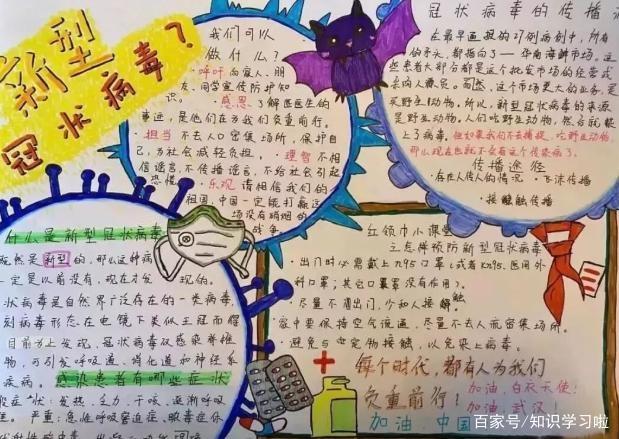 新型
冠状病毒?
我们可以
做什么?
·呼吁向家人、朋
友、同学宣传防护知
识。·感恩 了解医医生的
事迹,是他们在为我们负重前行。
·担当 不去人口密集场所,保护自
己,为社会减轻负担。·理智 不相
信谣言,不传播谣言,不给社会引起
恐慌。·乐观 请相信我们的
祖国,中国一定能打赢这
场没有硝烟的
战争。
冠状病毒的传播
在最早通报的27例病例中,所有
的矛头,都指向了——华南海鲜市场。这
些患者大部分都是这个批发市场的经营或
采购人员。而然,这个市场更大的业务,是
买野生动物。所以,新型冠状病毒的来源
是野生动物,人们吃野生动物,然后就染
上了病毒。但如果我们不去捕捉、吃野生动物,
那么现在也就不会有这个传染病了。
传播途径
·存在人传人的情况 ·飞沫传播
·接触传播
什么是新型冠状病毒
既然是新型的,那么这种病
一定是以前没有,现在才发现的。
状病毒是自然界广泛存在的一类病毒,
刻病毒形态在电镜下类似王冠而
目前为止发现,冠状病毒仅感染脊椎
物,可引发呼吸道、消化道和神经系
疾病。感染患者有哪些症状
症状:发热、乏力、干咳、逐渐呼吸
严重:急性呼吸窘迫症、脓毒症休
红领巾小课堂
三点怀预防新型冠状病毒
·出门时必需戴上n95口罩(或者Kn95、医用外
科口罩;其它口罩害没有作用)。
·尽量不用出门,少和人接触
家中要保持空气流通,尽量不去人流密集场所。
·避免与宠物接触,以免染上病毒。
每个时代,都有人为我们
负重前行!
加油,白衣天使!
加油,武汉!
加油 中国
百家号/知识学习啦